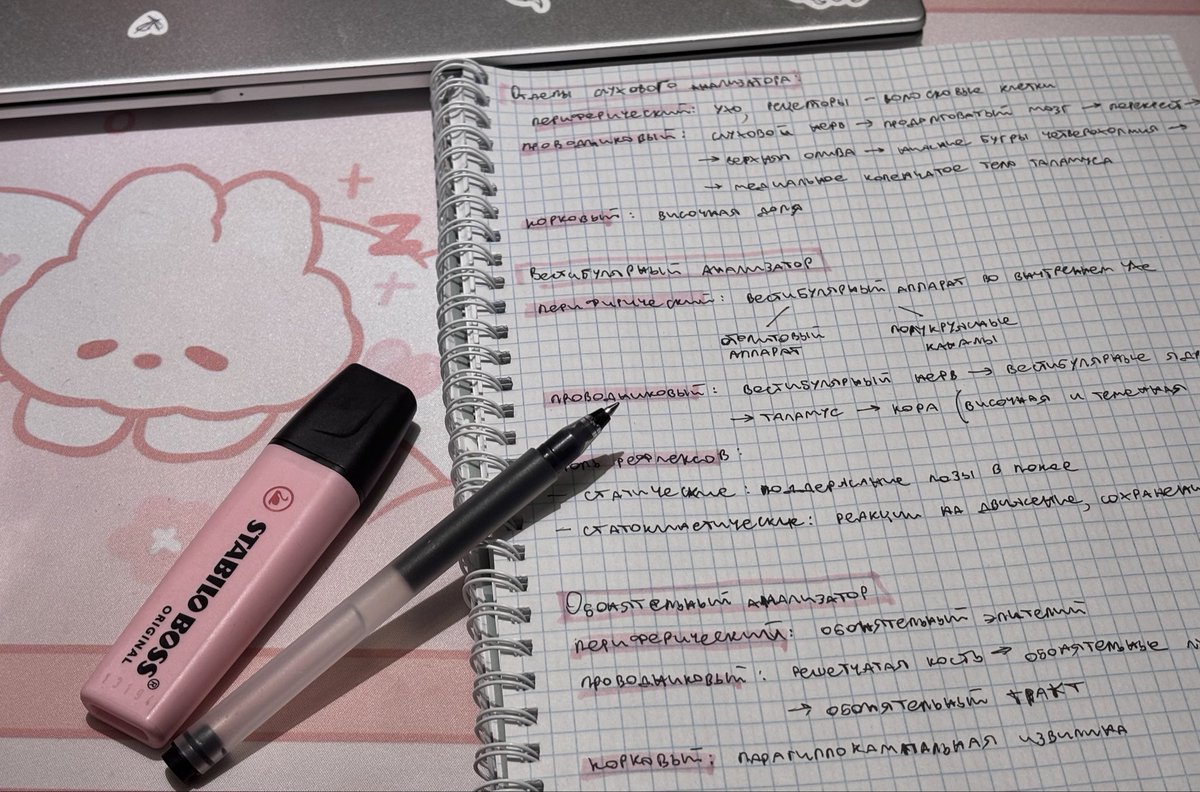 Отделы слухового анализатора:
периферический: ухо, рецепторы – волосковые клетки
проводниковый: слуховой нерв → продолговатый мозг → перекрест →
→ верхняя олива → нижние бугры четверохолмия →
→ медиальное коленчатое тела таламуса
корковый: височная доля
Вестибулярный анализатор
перифирический: вестибулярный аппарат во внутреннем ухе
отолитовый аппарат
полукружные каналы
проводниковый: вестибулярный нерв → вестибулярные ядр
→ таламус → кора (височная и теменная
рефлексов:
– статические: поддержание позы в покое
– статокинетические: реакции на движение, сохранени
Обонятельный анализатор
периферический: обонятельный эпителий
проводниковый: решетчатая кость → обонятельные
→ обонятельный тракт
корковый: парагиппокампальная извилина
STABILO BOSS®
ORIGINAL